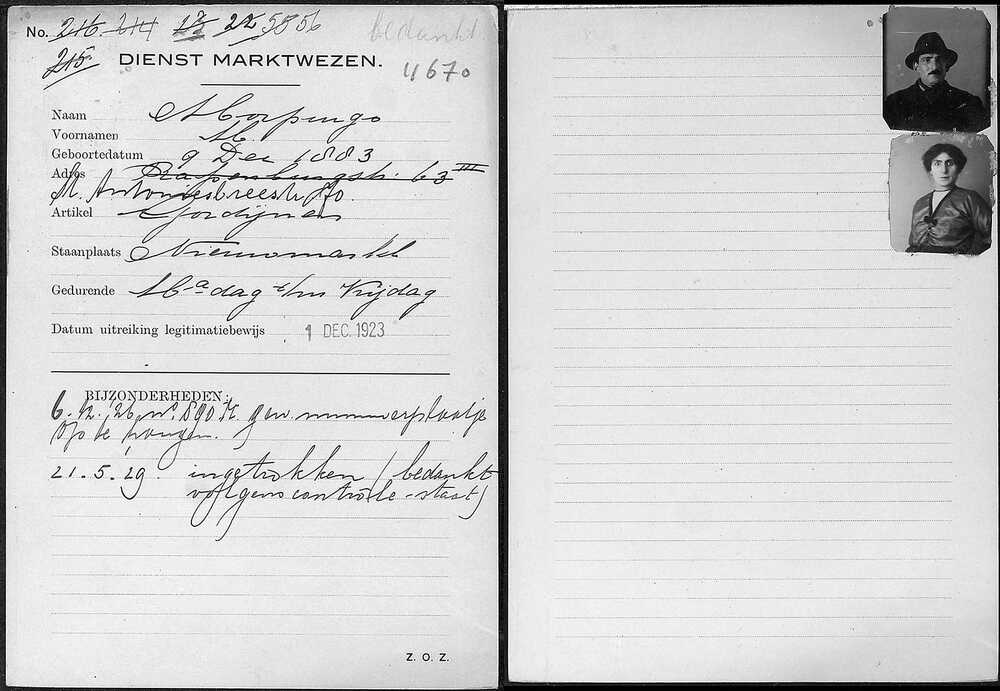 No. 216. 214 22 5856 bedankt.
215. DIENST MARKTWEZEN. 4670
Naam Morpurgo
Voornamen M.
Geboortedatum 9 Dec 1883
Adres Rapenburgstr. 63 III
St. Antoniesbreestr. 70.
Artikel Gordijnen
Staanplaats Nieuwmarkt
Gedurende Maandag t/m Vrijdag
Datum uitreiking legitimatiebewijs 1 DEC. 1923
BIJZONDERHEDEN:
6.12.'26 no. 890 gew. nummerplaatje
op te hangen.
21.5.29. ingetrokken (bedankt
volgens controle-staat)
Z. O. Z.